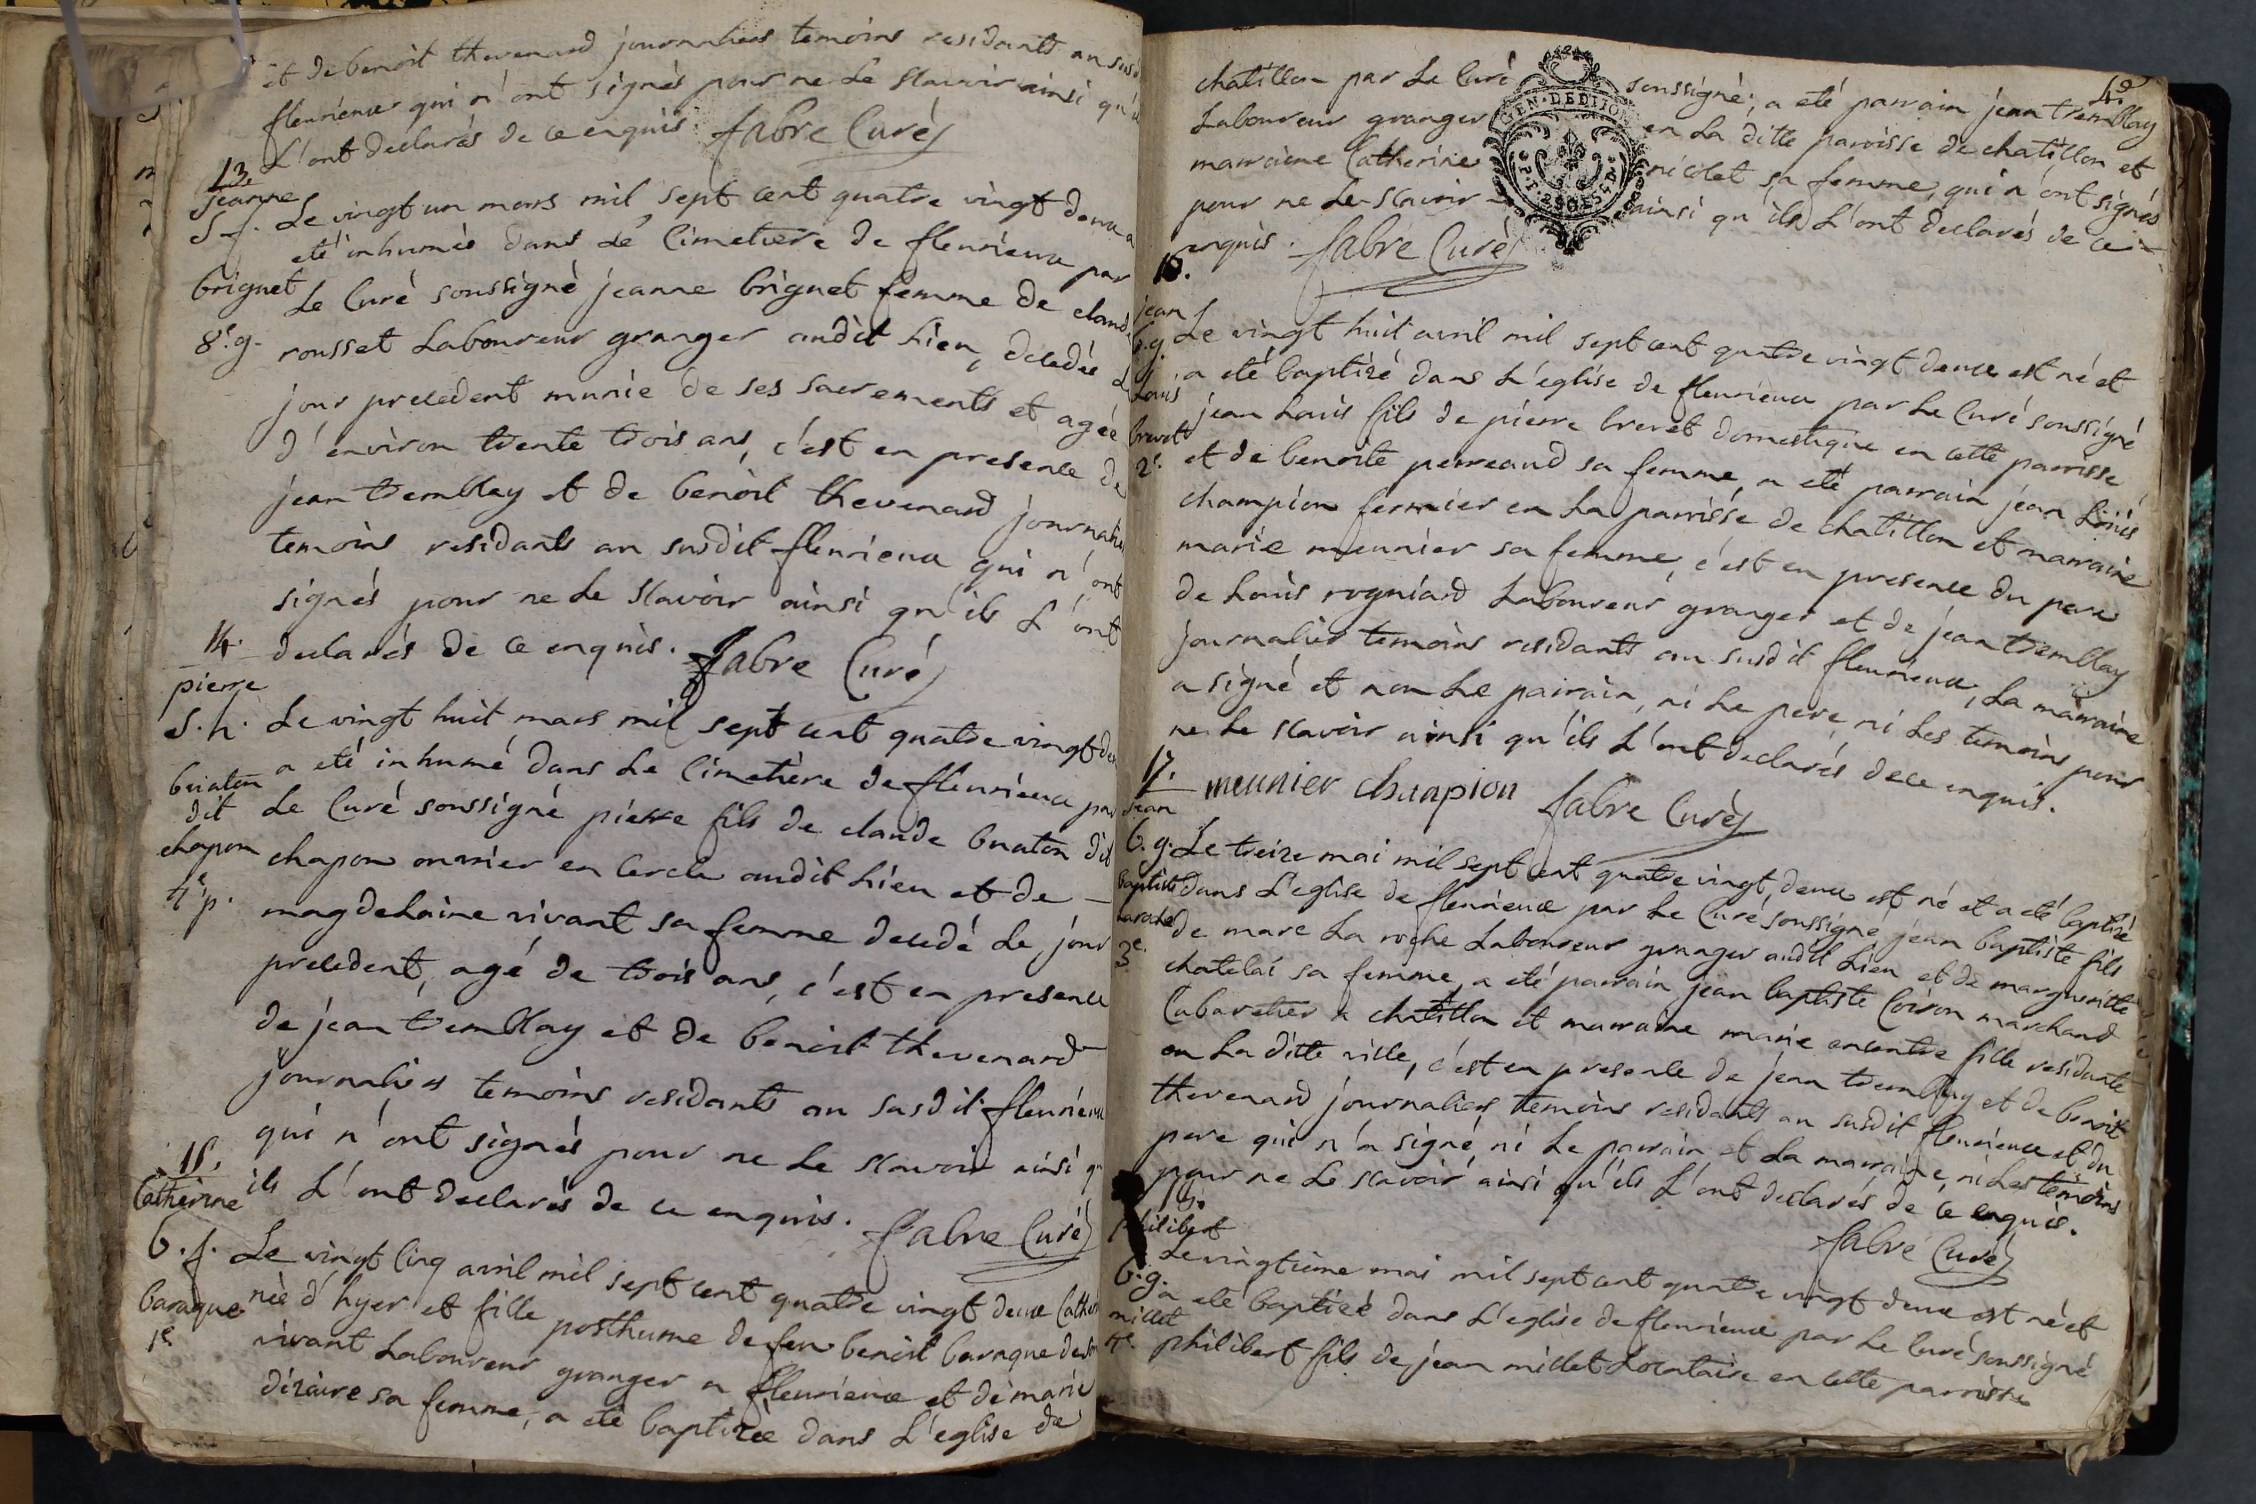 et de benoit thevenard journaliers temoins residants au susd
fleurieux qui n'ont signés pour ne le sçavoir ainsi qu'ils
L'ont declarés de ce enquis. fabre Curé
13.
jeanne
S. f.
briguet
8e. g.
Le vingt un mars mil sept cent quatre vingt deux a
eté inhumée dans Le Cimetière de fleurieux par
Le Curé soussigné jeanne briguet femme de claude
rousset Laboureur granger audit Lieu, decedée Le
jour precedent munie de ses sacrements et agée
d'environ trente trois ans, c'est en presence de
jean tremblay et de benoit thevenard journaliers
temoins residants au susdit fleurieux qui n'ont
signés pour ne Le sçavoir ainsi qu'ils L'ont
declarés de ce enquis. fabre Curé
14.
pierre
S. h.
buiaton
dit
chapon
4e p.
Le vingt huit mars mil sept cent quatre vingt deux
a eté inhumé dans Le Cimetière de fleurieux par
Le Curé soussigné pierre fils de claude buaton dit
chapon ouvrier en cercle audit Lieu et de
magdelaine vivant sa femme decedé Le jour
precedent, agé de trois ans, c'est en presence
de jean tremblay et de benoit thevenard
journaliers temoins residants au susdit fleurieux
qui n'ont signés pour ne Le sçavoir ainsi qu'
ils L'ont declarés de ce enquis. fabre Curé
15.
Catherine
b. f.
baraque
1e
Le vingt cinq avril mil sept cent quatre vingt deux Catherine
née d'hyer et fille posthume de feu benoit baraque de son
vivant Laboureur granger a fleurieux et de marie
dizaire sa femme, a eté baptizée dans L'eglise de
4e
chatillon par Le Curé soussigné, a eté parrain jean tremblay
Laboureur granger en La ditte parroisse de chatillon et
marraine Catherine nicolet sa femme, qui n'ont signés
pour ne Le sçavoir ainsi qu'ils L'ont declarés de ce
enquis. fabre Curé
GEN. DE DIJON
16.
jean
b. g.
Louis
brevet
2e.
Le vingt huit avril mil sept cent quatre vingt deux est né et
a eté baptizé dans L'eglise de fleurieux par Le Curé soussigné
jean Louis fils de pierre brevet domestique en cette parroisse
et de benoite perreaud sa femme, a eté parrain jean Louis
champion fermier en La parroisse de chatillon et marraine
marie meunier sa femme, c'est en presence du pere
de Louis rogniard Laboureur granger et de jean tremblay
journalier temoins residants au susdit fleurieux, La marraine
a signé et non Le parrain, ni Le pere, ni Les temoins pour
ne Le sçavoir ainsi qu'ils L'ont declarés de ce enquis.
meunier champion fabre Curé
17.
jean
b. g.
baptiste
laroche
3e.
Le treize mai mil sept cent quatre vingt deux est né et a eté baptizé
dans L'eglise de fleurieux par Le Curé soussigné jean baptiste fils
de marc La roche Laboureur granger audit Lieu et de margueritte
chatelai sa femme, a eté parrain jean baptiste Coiron marchand
Cabaretier a chatillon et marraine marie fille residante
en La ditte ville, c'est en presence de jean tremblay et de benoit
thevenard journaliers temoins residants au susdit fleurieux et du
pere qui n'a signé, ni Le parrain et La marraine, ni Les temoins
pour ne Le sçavoir ainsi qu'ils L'ont declarés de ce enquis.
fabre Curé
18.
philibert
b. g.
millet
4e.
Le vingtieme mai mil sept cent quatre vingt deux est né et
a eté baptizé dans L'eglise de fleurieux par Le Curé soussigné
philibert fils de jean millet Locataire en cette parroisse